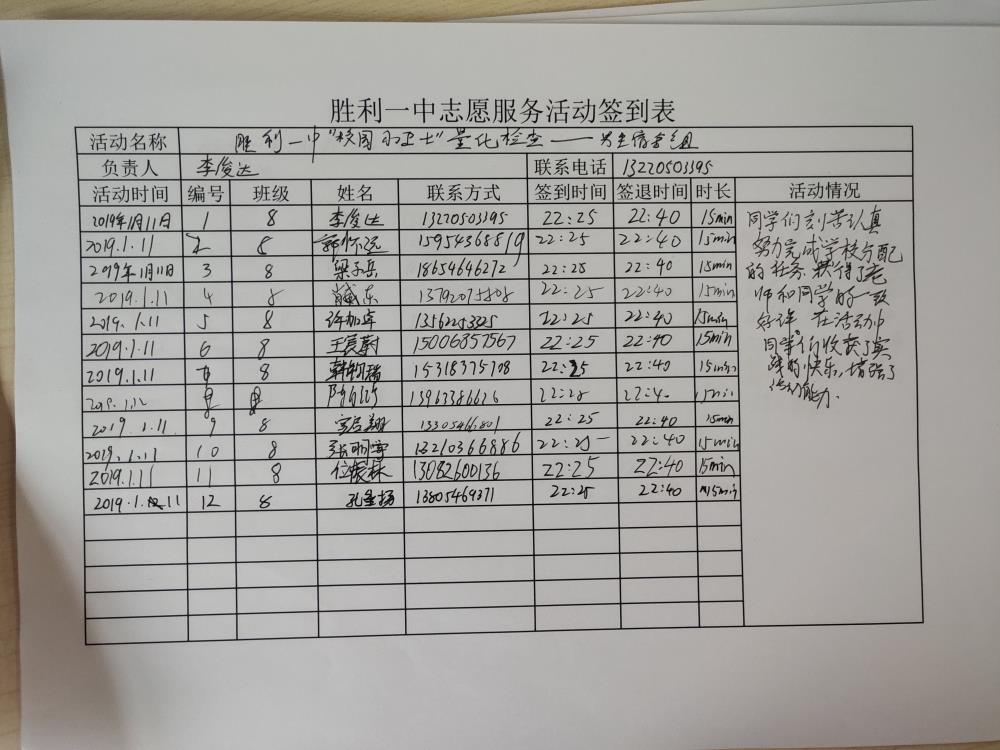 胜利一中志愿服务活动签到表
活动名称 胜利一中"校园卫士"量化检查——男生宿舍组
负责人 李俊达 联系电话 13220503195
活动时间 编号 班级 姓名 联系方式 签到时间 签退时间 时长 活动情况
2019年1月11日 1 8 李俊达 13220503195 22:25 22:40 15min
2019.1.11 2 8 郭怀远 15954368819 22:25 22:40 15min
2019年1月11日 3 8 梁子岳 18654646272 22:25 22:40 15min
2019.1.11 4 8 臧东 22:25 22:40 15min
2019.1.11 5 8 许加卓 22:25 22:40 15min
2019.1.11 6 8 王宸蔚 15006857567 22:25 22:40 15min
2019.1.11 7 8 15318375708 22:25 22:40 15min
8 8 13963386626 15min
2019.1.11 9 8 22:25 22:40 15min
2019.1.11 10 8 13210366886 22:25 22:40 15min
2019.1.11 11 8 位振林 13082600136 22:25 22:40 15min
2019.1.11 12 8 孔圣扬 13805469371 22:25 22:40 15min
同学们刻苦认真
努力完成学校分配
的任务.获得了老
师和同学的一致
好评。在活动中
同学们收获了实
践的快乐,增强了
活动能力.